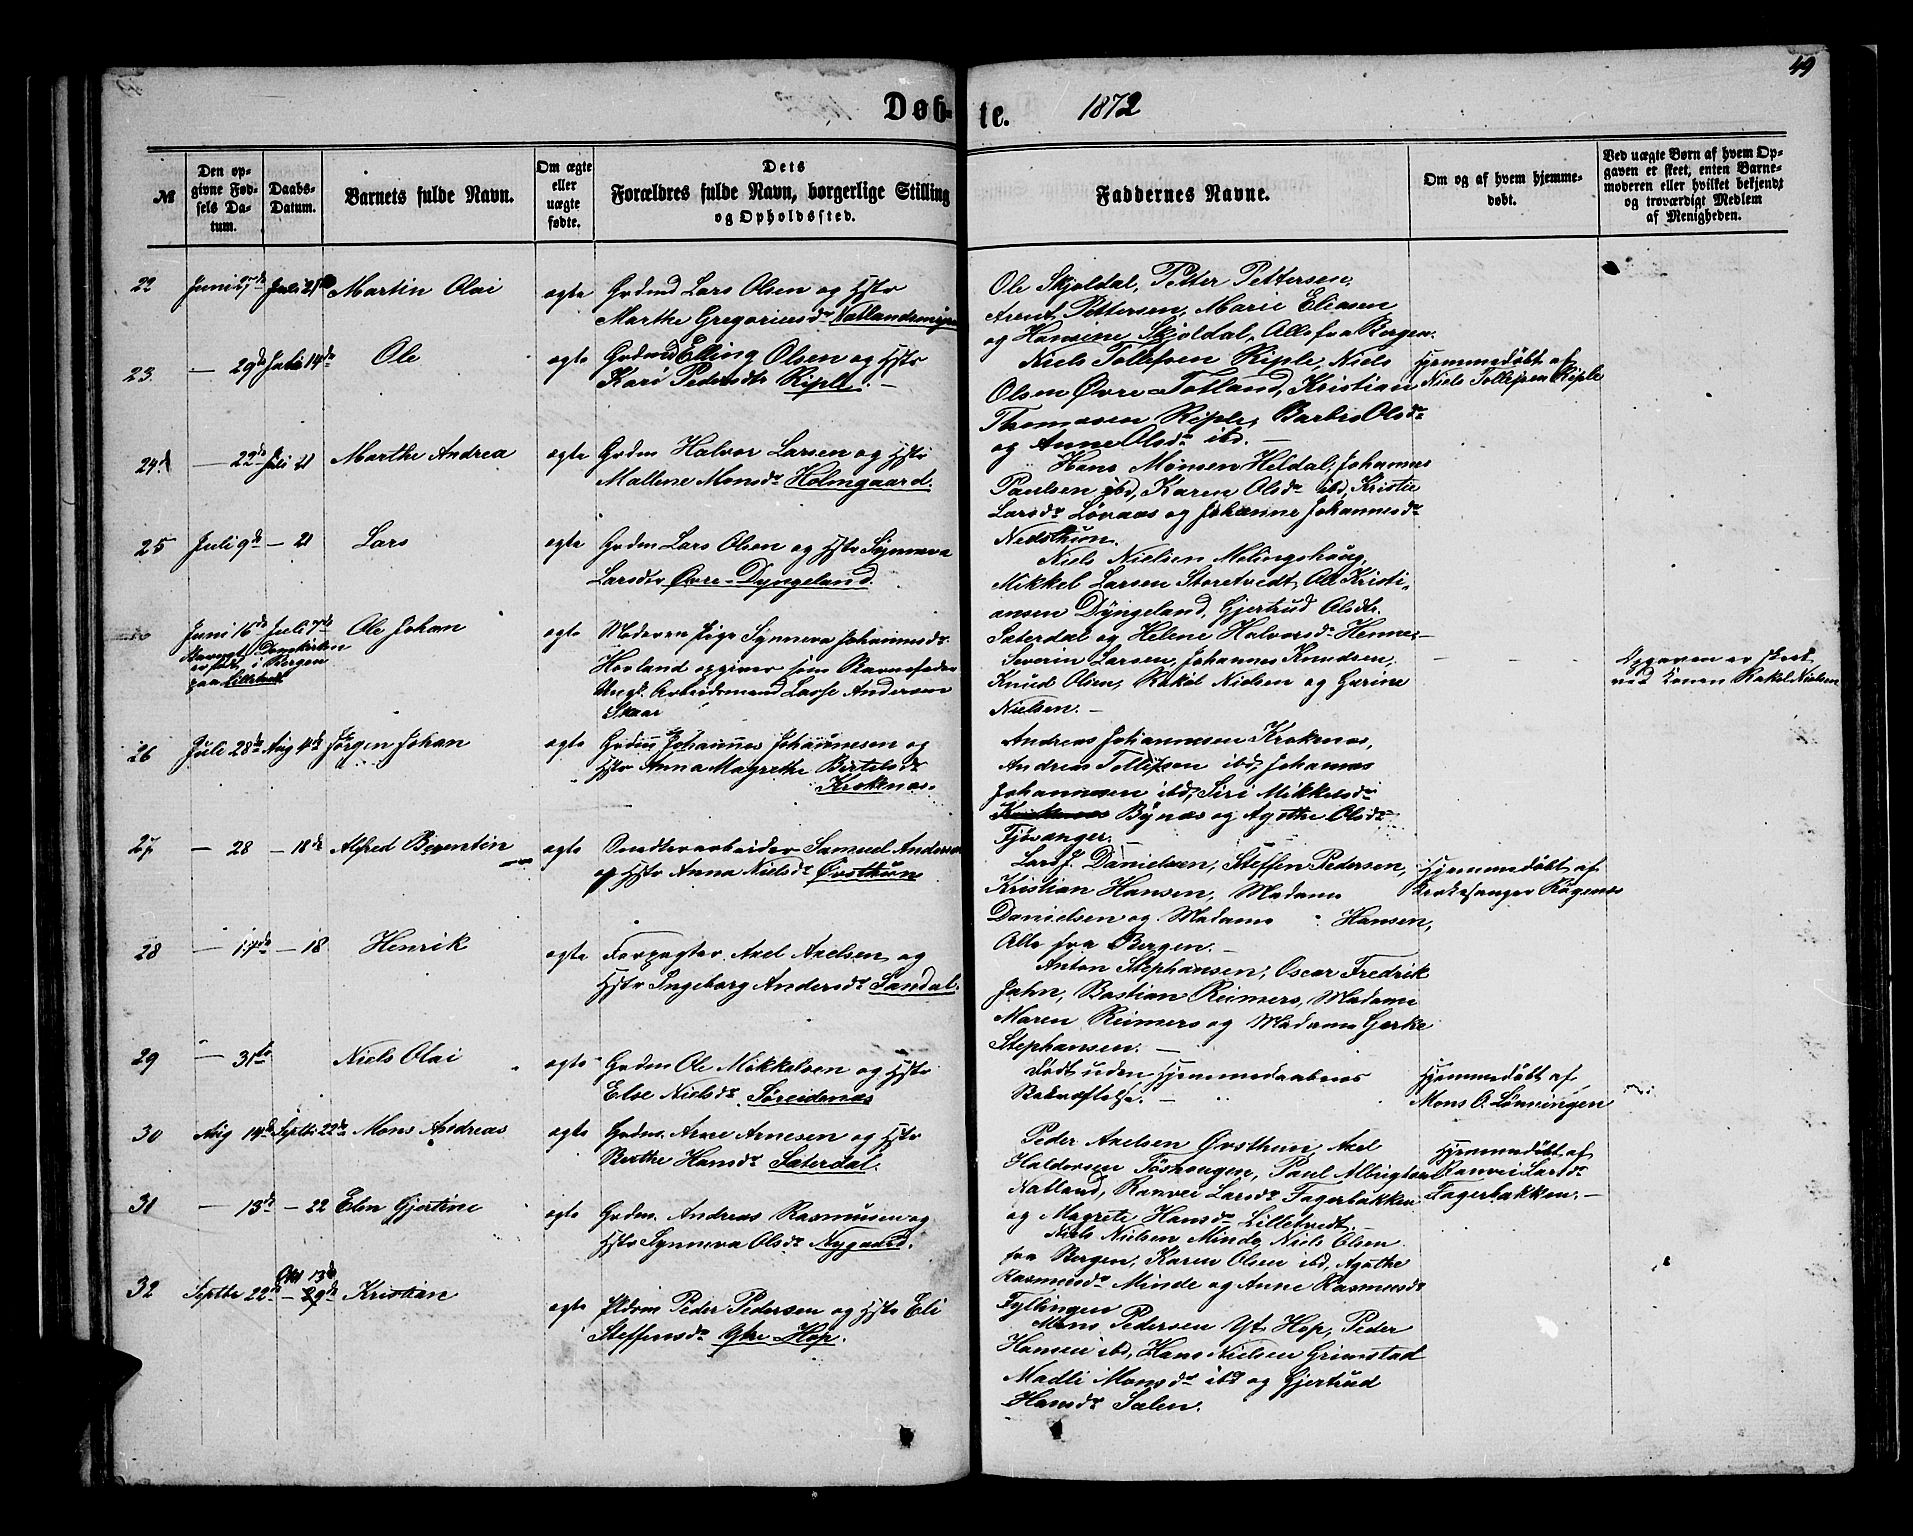 49
Døb- te. 1872
№
Den op-
givne Fød-
sels Da-
tum.
Daabs-
Datum.
Barnets fulde Navn.
Om ægte
eller
uægte
fødte.
Dets
Forældres fulde Navn, borgerlige Stilling
og Opholdssted.
Faddernes Navne.
Om og af hvem hjemme-
døbt.
Ved uægte Børn af hvem Op-
gaven er skeet, enten Barne-
moderen eller hvilket bekjendt
og troværdigt Medlem
af Menigheden.
22 Juni 27de Juli 21 Martin Olai ægte Grdmd Lars Olsen og Hstr
Marthe Gregoriusdr Natlandsmyren
Ole Skjoldal, Petter Pettersen,
Arent Pettersen, Marie Eliasen
og Hansine Skjoldal, Alle fra Bergen.
23. — 29de Juli 14de Ole ægte Grdmd Elling Olsen og Hstr
Kari Pedersdtr Riple. —
Niels Tollefsen Riple, Niels
Olsen Øvre-Totland, Kristian
Thomasen Riple, Barbro Olsdr
og Anne Olsdr ibd. —
Hjemmedøbt af
Niels Tollefsen Riple
24 — 22de Juli 21 Marthe Andrea ægte Grdm Halvor Larsen og Hstr
Mallene Monsdr Holmgaard.
Hans Monsen Heldal, Johannes
Paulsen ibd, Karen Olsdr ibd, Kristie
Larsdr Løvaas og Johanne Johannesdr
Nedsthun.
25 Juli 9de — 21 Lars ægte Grdm Lars Olsen og Hstr Synneva
Larsdtr Øvre-Dyngeland.
Niels Nielsen Melingshaug,
Mikkel Larsen Storetvedt, Ole Kristi-
ansen Dyngeland, Gjertrud Olsdtr.
Sæterdal og Helene Halvorsdr Henne.—
Juni 16de Juli 7de Ole Johan ægte Moderen Pige Synneva Johannesdr
Barnet Domkirken
er født i Bergen
paa
Hovland opgiver som Barnefader
Ungk. Arbeidsmand Lasse Andersen
Skaar
Severin Larsen, Johannes Knudsen,
Knud Olsen, Rakel Nielsen og Gurine
Nielsen. —
Opgaven er skeet
ved Konen Rakel Nielsen
26 Juli 28de Aug 4de Jørgen Johan ægte Grdm Johannes Johannesen og
Hstr Anna Magrethe Bertelsdr
Kroknæs.
Andreas Johannesen Kroknæs,
Andreas Tollefsen ibd, Johannes
Johannesen ibd, Siri Mikkelsdr
Bynæs og Agathe Olsdr
Fjøsanger. —
27. — 28 — 18de Alfred Bergentin ægte Snedkerarbeider Samuel Andersen
og Hstr Anna Nielsdr Øvsthun
Lars J. Danielsen, Steffen Pedersen,
Kristian Hansen, Madame
Danielsen og Madame Hansen,
Alle fra Bergen. —
Hjemmedøbt af
Kirkesanger Røgenæs
28 — 17de — 18 Henrik ægte Forpagter Axel Axelsen og
Hstr Ingeborg Andersdr Sandal.
Anton Stephansen, Oscar Fredrik
Jahn, Bastian Reimers, Madame
Maren Reimers og Madame Gerke
Stephansen. —
29 — 31te Niels Olai ægte Grdm Ole Mikkelsen og Hstr
Else Nielsdr Søreidenæs
Død uden Hjemmedaabens
Bekræftelse. —
Hjemmedøbt af
Mons O. Lønningen
30 Aug 14de Septbr 22de Mons Andreas ægte Grdm. Arne Arnesen og Hstr
Berthe Hansdr Sæterdal.
Peder Axelsen Øvsthun, Axel
Haldorsen Tøshougen, Paul Albrigtsen
Natland, Ranvei Larsdr Fagerbakken
og Magrete Hansdr Lilletvedt.
Hjemmedøbt af
Ranvei Larsdr
Fagerbakken. —
31 — 13de — 22 Elen Gjertine ægte Grdm. Andreas Rasmusen og
Hstr Synneva Olsdr Nygaard.
Niels Nielsen Minde, Niels Olsen
fra Bergen, Karen Olsen ibd, Agathe
Rasmusdr Minde og Anne Rasmusdr
Fyllingen
32 Septbr 22de Okt 13de — 29de Kristian ægte Pldsm Peder Pedersen og Hstr Eli
Steffensdr Ytre Hop.
Mons Pedersen Yt. Hop, Peder
Hansen ibd, Hans Nielsen Grimstad
Madli Monsdr ibd og Gjertrud
Hansdr Sælen.